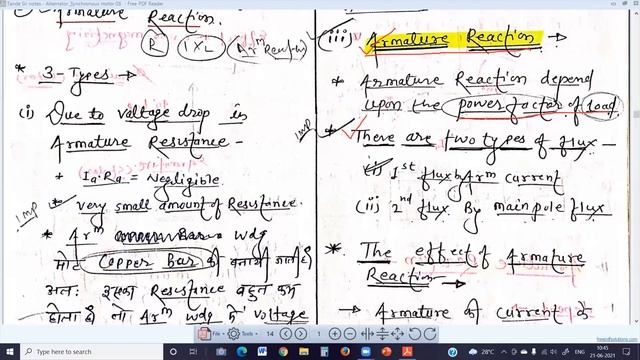 Tande Sir notes - Alternator_Synchronous motor 08 - Free PDF Reader
Armature Reaction.
R IXL Arm Reaction
* 3-Types →
(i) Due to voltage drop in
Armature Resistance -
+ IaRa = Negligible.
Imp * very small amount of Resistance.
* Arm Bar Wdg
मोटे Copper Bar की बनायी जाती है
अतः इसका Resistance बहुत कम
होता है तो Arm Wdg के voltage
(iii) Armature Reaction →
* Armature Reaction depend
upon the power factor of load.
Imp * There are two types of flux -
(i) 1st flux by Arm current
(ii) 2nd flux By main pole flux
* The effect of Armature
Reaction →
→ Armature की current के
File Tools 14 1
Type here to search
28°C
10:45
21-06-2021
freepdfsolutions.com